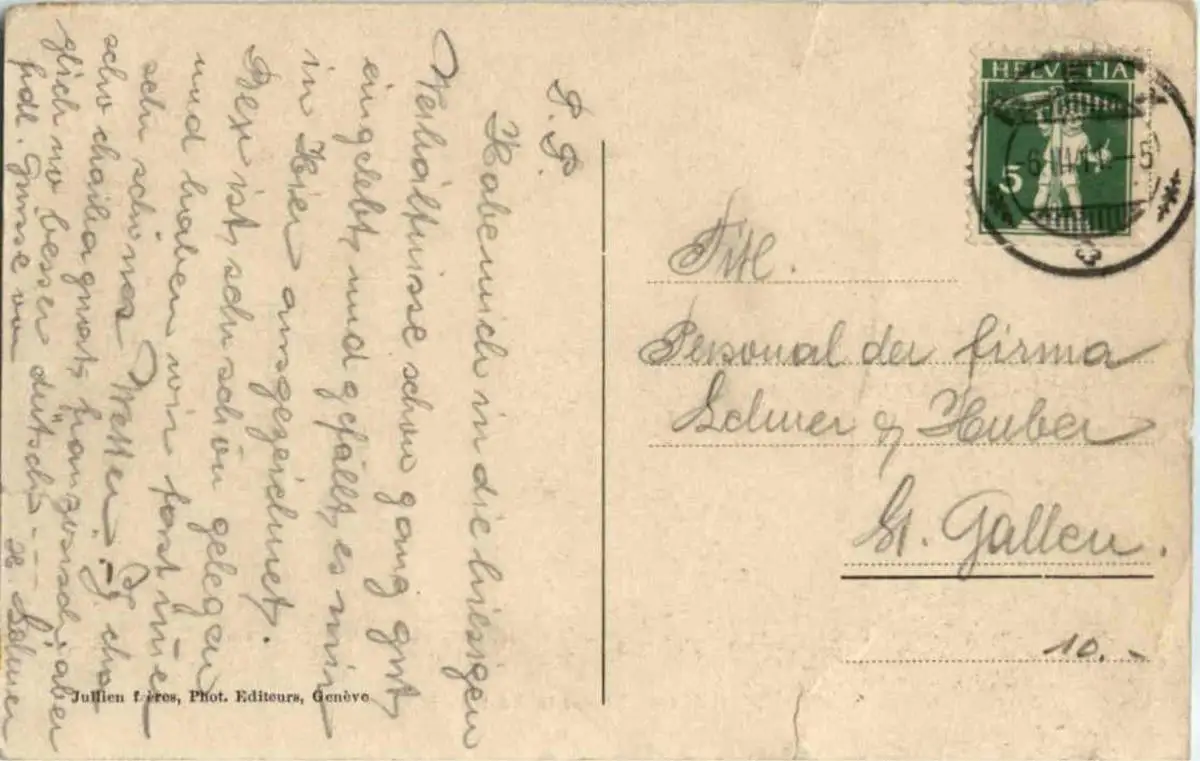 P. P.
Habe mich in die hiesigen
Verhältnisse schon ganz gut
eingelebt, und gefällt es mir
in Hier ausgezeichnet.
Bex ist, sehr schön gelegen
und haben wir fast immer
sehr schönes Wetter. – I cha
scho chaiba guat, französisch, aber
glich no besser dütsch - - -
frdl. Grüsse von
H. Lehner
Jullien frères, Phot. Editeurs, Genève
HELVETIA
5
Titl.
Personal der Firma
Lehner & Huber
St. Gallen.
10.-